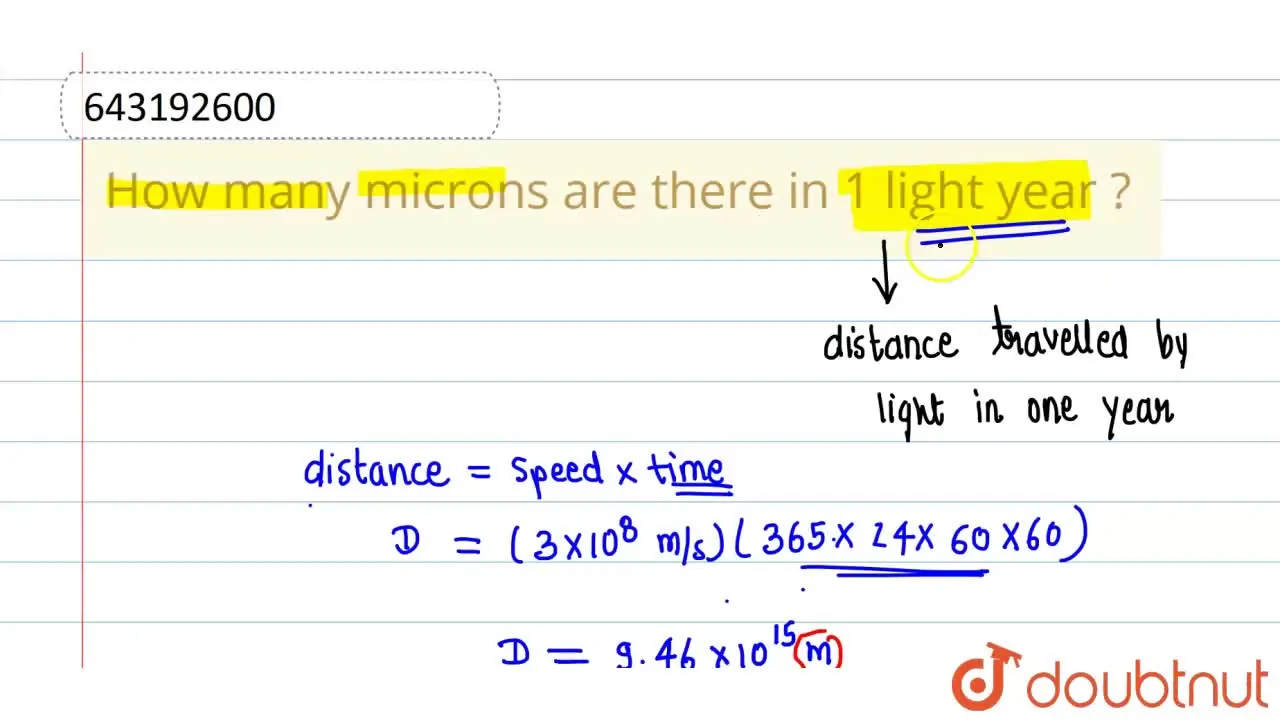 643192600
How many microns are there in 1 light year ?
↓
distance travelled by
light in one year
distance = speed × time
D = (3×10⁸ m/s) (365× 24× 60 ×60)
D = 9.46 ×10¹⁵(m)
doubtnut